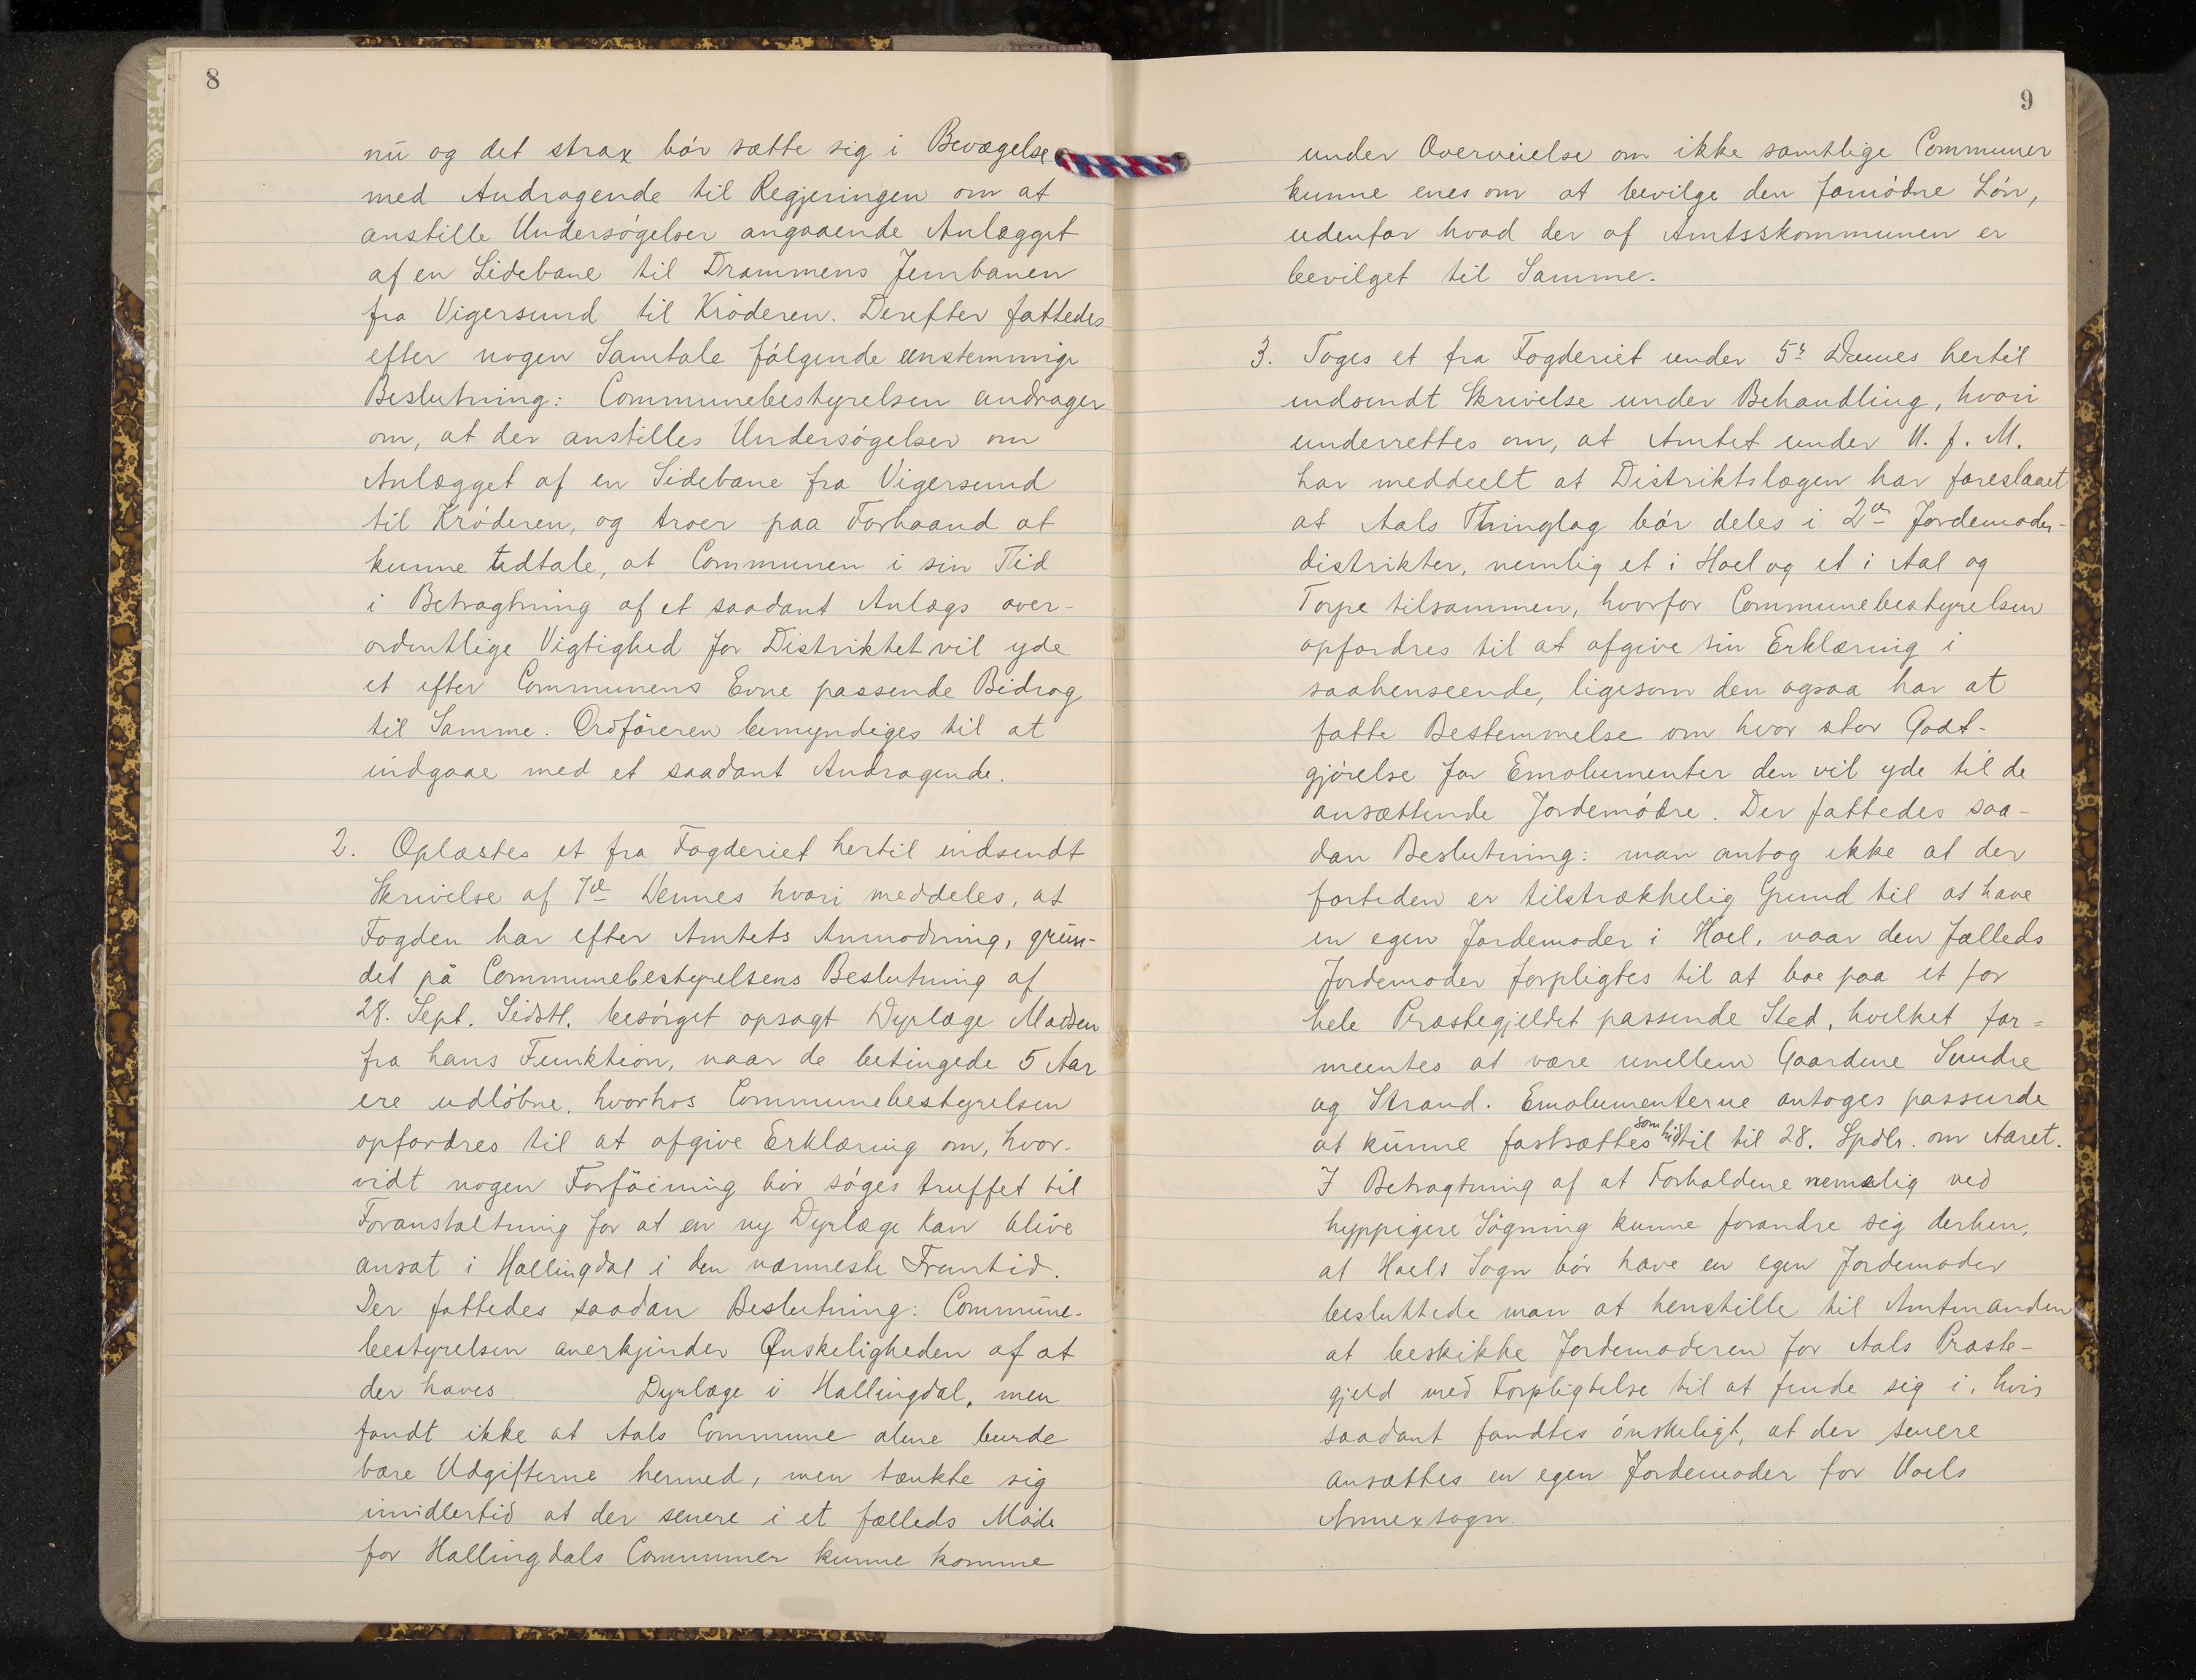 8
nu og det strax bör sætte sig i Bevægelse
med Andragende til Regjeringen om at
anstille Undersøgelser angaaende Anlægget
af en Sidebane til Drammens Jernbanen
fra Vigersund til Krøderen. Derefter fattedes
efter nogen Samtale følgende eenstemmige
Beslutning: Communebestyrelsen andrager
om, at der anstilles Undersøgelser om
Anlægget af en Sidebane fra Vigersund
til Krøderen, og troer paa Forhaand at
kunne udtale, at Communen i sin Tid
i Betragtning af et saadant Anlægs over-
ordentlige Vigtighed for Distriktet vil yde
et efter Communens Evne passende Bidrag
til Samme. Ordføreren bemyndiges til at
indgaae med et saadant Andragende.
2. Oplæstes et fra Fogderiet hertil indsendt
Skrivelse af 7de Dennes hvori meddeles, at
Fogden har efter Amtets Anmodning, grun-
det på Communebestyrelsens Beslutning af
28. Sept. Sidstl. besørget opsagt Dyrlæge Madsen
fra hans Funktion, naar de betingede 5 Aar
ere udløbne, hvorhos Communebestyrelsen
opfordres til at afgive Erklæring om, hvor-
vidt nogen Forføining bør søges truffet til
Foranstaltning for at en ny Dyrlæge kan blive
ansat i Hallingdal i den nærmeste Fremtid.
Der fattedes saadan Beslutning: Commune-
bestyrelsen anerkjender Ønskeligheden af at
der haves Dyrlæge i Hallingdal, men
fandt ikke at Aals Commune alene burde
bære Udgifterne hermed, men tænkte sig
imidlertid at der senere i et fælleds Møde
for Hallingdals Communer kunne komme
9
under Overveielse om ikke samtlige Communer
kunne enes om at bevilge den fornödne Lön,
udenfor hvad der af Amtsskommunen er
bevilget til Samme.
3. Toges et fra Fogderiet under 5te Dennes hertil
indsendt Skrivelse under Behandling, hvori
underrettes om, at Amtet under 11. f. M.
har meddeelt at Distriktslægen har foreslaaet
at Aals Thinglag bör deles i 2de Jordemoder-
distrikter, nemlig et i Hoel og et i Aal og
Torpe tilsammen, hvorfor Communebestyrelsen
opfordres til at afgive sin Erklæring i
saahenseende, ligesom den ogsaa har at
fatte Bestemmelse om hvor stor Godt-
gjørelse for Emolumenter den vil yde til de
ansættende Jordemødre. Der fattedes saa-
dan Beslutning: man antog ikke at der
fortiden er tilstrækkelig Grund til at have
en egen Jordemoder i Hoel, naar den fælleds
Jordemoder forpligtes til at boe paa et for
hele Præstegjeldet passende Sted, hvilket for=
meentes at være imellem Gaardene Sundre
og Strand. Emolumenterne antoges passende
at kunne fastsættes som hidtil til 28. Spdlr. om Aaret.
I Betragtning af at Forholdene nemælig ved
hyppigere Søgning kunne forandre sig derhen,
at Hoels Sogn bør have en egen Jordemoder
besluttede man at henstille til Amtmanden
at beskikke Jordemoderen for Aals Præste-
gjeld med Forpligtelse til at finde sig i, hvis
saadant fandtes ønskeligt, at der senere
ansættes en egen Jordemoder for Hoels
Annexsogn.